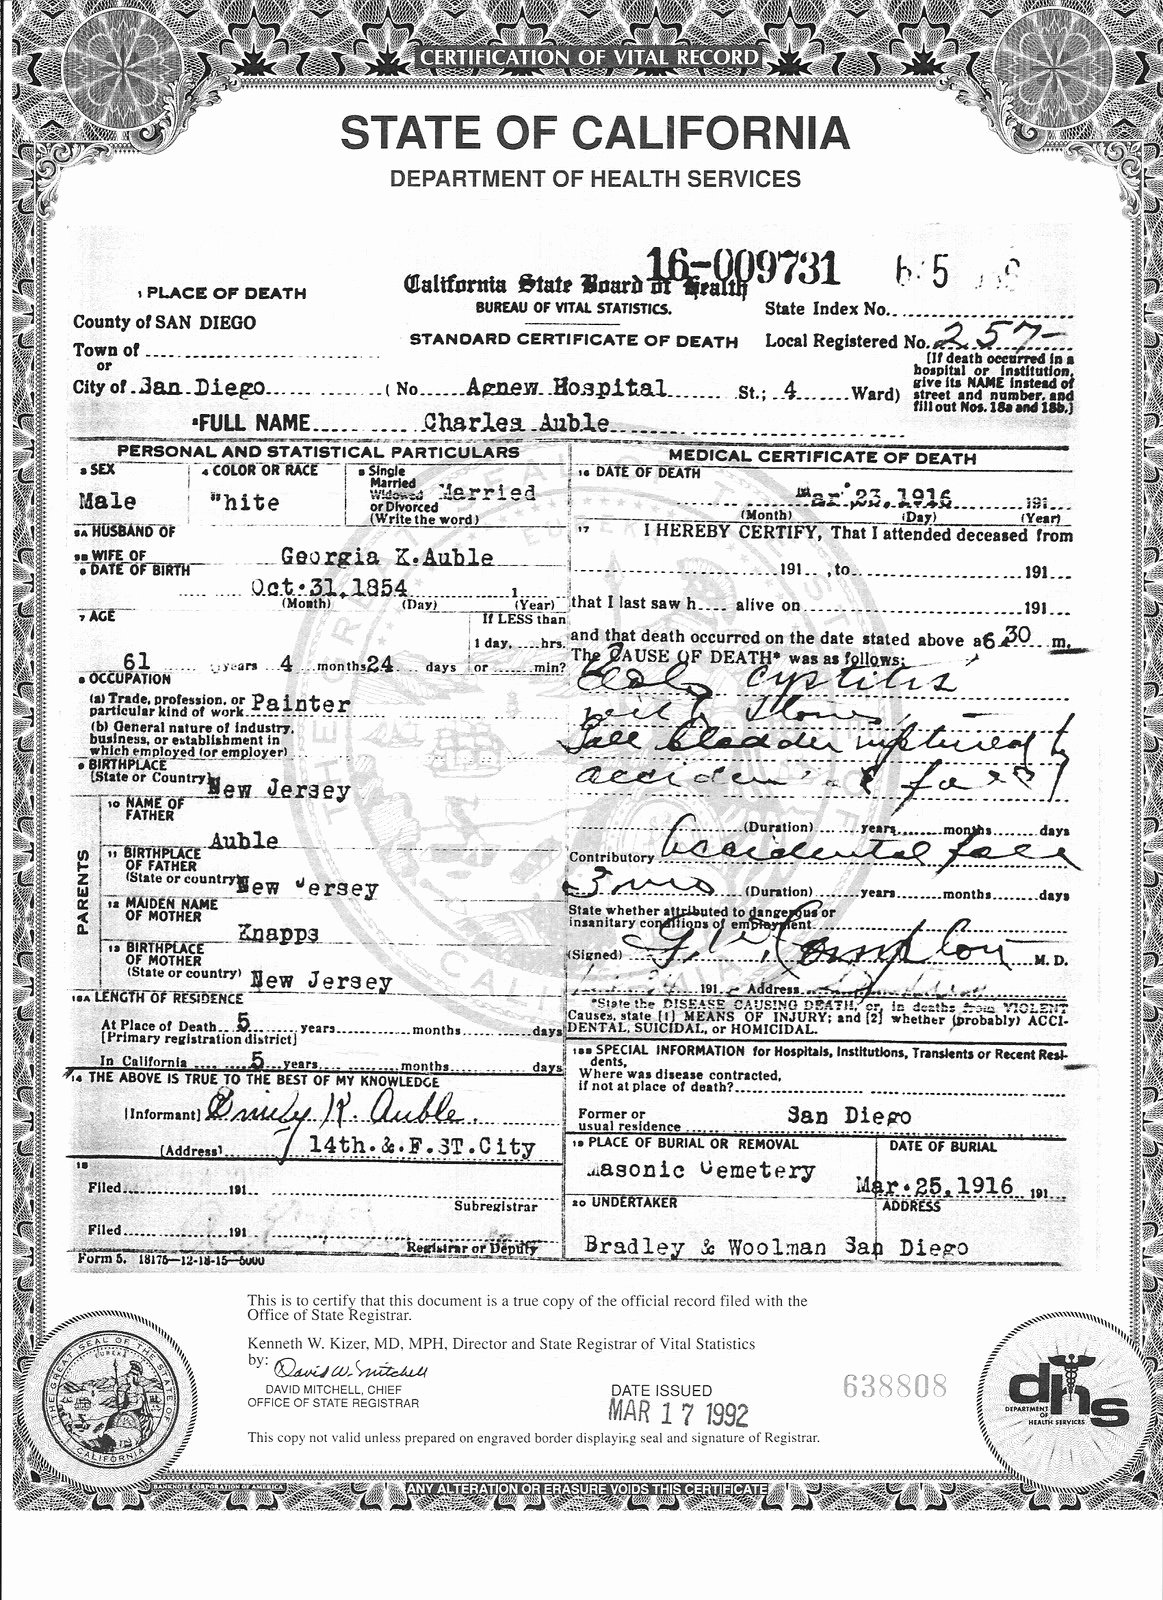 CERTIFICATION OF VITAL RECORD
STATE OF CALIFORNIA
DEPARTMENT OF HEALTH SERVICES
16-009731
1 PLACE OF DEATH
California State Board of Health
BUREAU OF VITAL STATISTICS.
State Index No.
County of SAN DIEGO
STANDARD CERTIFICATE OF DEATH
Local Registered No. 257
Town of
or
City of San Diego (No. Agnew Hospital St.; 4 Ward)
[If death occurred in a hospital or institution, give its NAME instead of street and number, and fill out Nos. 18a and 18b.]
2 FULL NAME Charles Auble
PERSONAL AND STATISTICAL PARTICULARS
3 SEX
Male
4 COLOR OR RACE
White
5 Single
Married
Widowed
or Divorced
(Write the word)
Married
5A HUSBAND OF
5B WIFE OF
Georgia K. Auble
6 DATE OF BIRTH
Oct. 31, 1854 1
(Month) (Day) (Year)
7 AGE
If LESS than
1 day, hrs.
61 years 4 months 24 days or min?
8 OCCUPATION
(a) Trade, profession, or
particular kind of work Painter
(b) General nature of industry,
business, or establishment in
which employed (or employer)
9 BIRTHPLACE
(State or Country) New Jersey
PARENTS
10 NAME OF
FATHER
Auble
11 BIRTHPLACE
OF FATHER
(State or country) New Jersey
12 MAIDEN NAME
OF MOTHER
Knapps
13 BIRTHPLACE
OF MOTHER
(State or country) New Jersey
18A LENGTH OF RESIDENCE
At Place of Death 5 years months days
[Primary registration district]
In California 5 years months days
14 THE ABOVE IS TRUE TO THE BEST OF MY KNOWLEDGE
[Informant] Emily K. Auble.
[Address] 14th. & F. ST. City
15
Filed 191
Subregistrar
Filed 191
Registrar or Deputy
Form 5. 18175-12-18-15-5000
MEDICAL CERTIFICATE OF DEATH
16 DATE OF DEATH
Mar. 23, 1916 191
(Month) (Day) (Year)
17 I HEREBY CERTIFY, That I attended deceased from
191 , to 191
that I last saw h alive on 191
and that death occurred on the date stated above at 6 30 m.
The CAUSE OF DEATH* was as follows:
cystitis
with Stones,
Gall bladder ruptured by
accidental fall
(Duration) years months days
Contributory Accidental fall
3 mo (Duration) years months days
State whether attributed to dangerous or
insanitary conditions of employment.
(Signed) Compton M. D.
191 Address
*State the DISEASE CAUSING DEATH, or, in deaths from VIOLENT
Causes, state [1] MEANS OF INJURY; and [2] whether (probably) ACCI-
DENTAL, SUICIDAL, or HOMICIDAL.
18B SPECIAL INFORMATION for Hospitals, Institutions, Transients or Recent Resi-
dents,
Where was disease contracted,
if not at place of death?
Former or
usual residence San Diego
19 PLACE OF BURIAL OR REMOVAL
Masonic Cemetery
DATE OF BURIAL
Mar. 25, 1916 191
20 UNDERTAKER
ADDRESS
Bradley & Woolman San Diego
This is to certify that this document is a true copy of the official record filed with the
Office of State Registrar.
Kenneth W. Kizer, MD, MPH, Director and State Registrar of Vital Statistics
by: David W. Mitchell
DAVID MITCHELL, CHIEF
OFFICE OF STATE REGISTRAR
DATE ISSUED
MAR 17 1992
638808
This copy not valid unless prepared on engraved border displaying seal and signature of Registrar.
THE GREAT SEAL OF THE STATE OF CALIFORNIA
EUREKA
dhs
DEPARTMENT
OF
HEALTH SERVICES
BANKNOTE CORPORATION OF AMERICA
ANY ALTERATION OR ERASURE VOIDS THIS CERTIFICATE